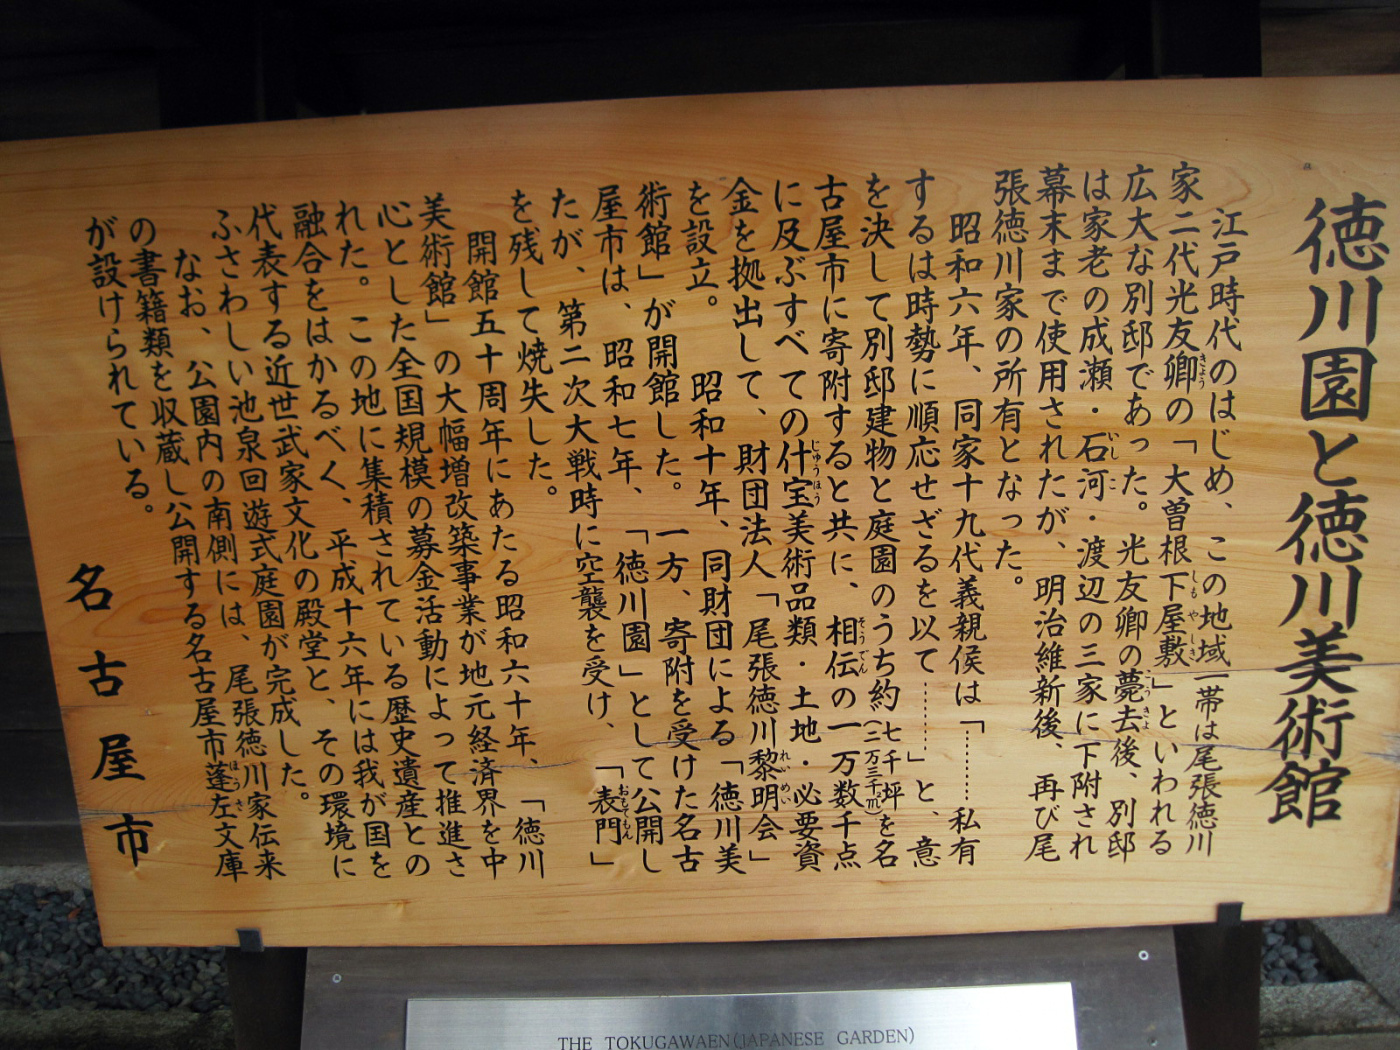 徳川園と徳川美術館
江戸時代のはじめ、この地域一帯は尾張徳川
家二代光友卿の「大曽根下屋敷」といわれる
広大な別邸であった。光友卿の薨去後、別邸
は家老の成瀬・石河・渡辺の三家に下附され
幕末まで使用されたが、明治維新後、再び尾
張徳川家の所有となった。
昭和六年、同家十九代義親侯は「………私有
するは時勢に順応せざるを以て………」と、意
を決して別邸建物と庭園のうち約七千坪(二万三千㎡)を名
古屋市に寄附すると共に、相伝の一万数千点
に及ぶすべての什宝美術品類・土地・必要資
金を拠出して、財団法人「尾張徳川黎明会」
を設立。 昭和十年、同財団による「徳川美
術館」が開館した。 一方、寄附を受けた名古
屋市は、昭和七年、「徳川園」として公開し
たが、第二次大戦時に空襲を受け、「表門」
を残して焼失した。
開館五十周年にあたる昭和六十年、「徳川
美術館」の大幅増改築事業が地元経済界を中
心とした全国規模の募金活動によって推進さ
れた。この地に集積されている歴史遺産との
融合をはかるべく、平成十六年には我が国を
代表する近世武家文化の殿堂と、その環境に
ふさわしい池泉回遊式庭園が完成した。
なお、公園内の南側には、尾張徳川家伝来
の書籍類を収蔵し公開する名古屋市蓬左文庫
が設けられている。
名古屋市
THE TOKUGAWAEN(JAPANESE GARDEN)